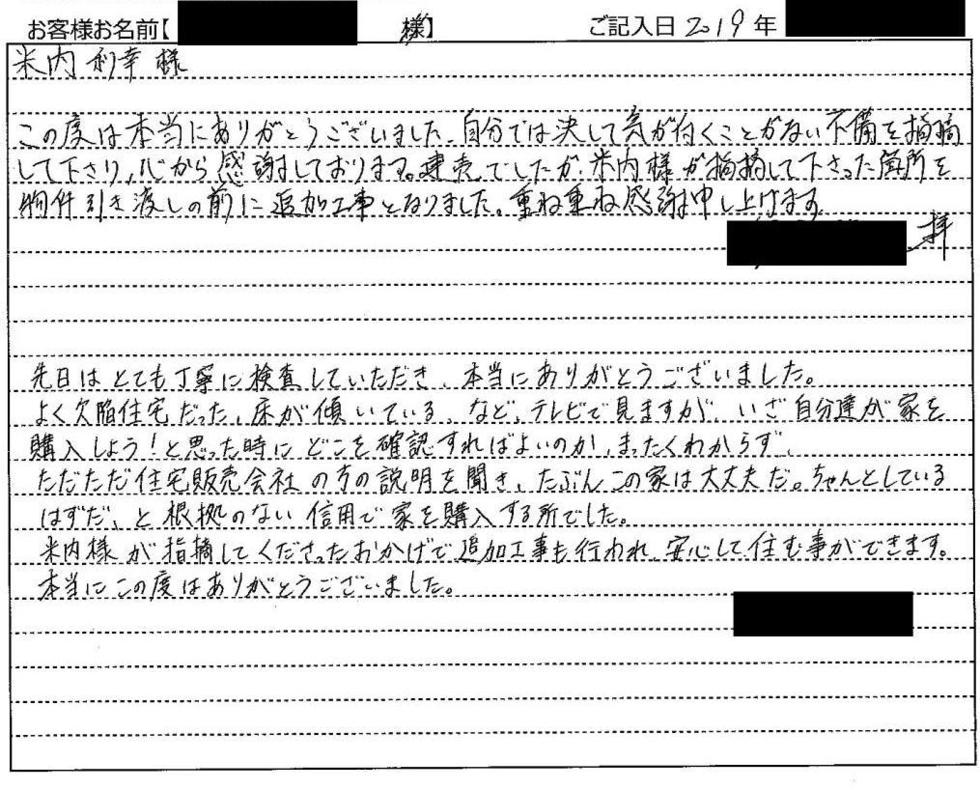 お客様お名前【 様】 ご記入日 2019年
米内 利幸 様
この度は本当にありがとうございました。自分では決して気が付くことがない不備を指摘
して下さり、心から感謝しております。建売でしたが、米内様が指摘して下さった箇所を
物件引き渡しの前に追加工事となりました。重ね重ね感謝申し上げます
拝
先日はとても丁寧に検査していただき、本当にありがとうございました。
よく欠陥住宅だった、床が傾いている、など、テレビで見ますが、いざ自分達が家を
購入しよう!と思った時にどこを確認すればよいのか、まったくわからず、
ただただ住宅販売会社の方の説明を聞き、たぶんこの家は大丈夫だ。ちゃんとしている
はずだ、と根拠のない信用で家を購入する所でした。
米内様が指摘してくださったおかげで追加工事も行われ、安心して住む事ができます。
本当にこの度はありがとうございました。